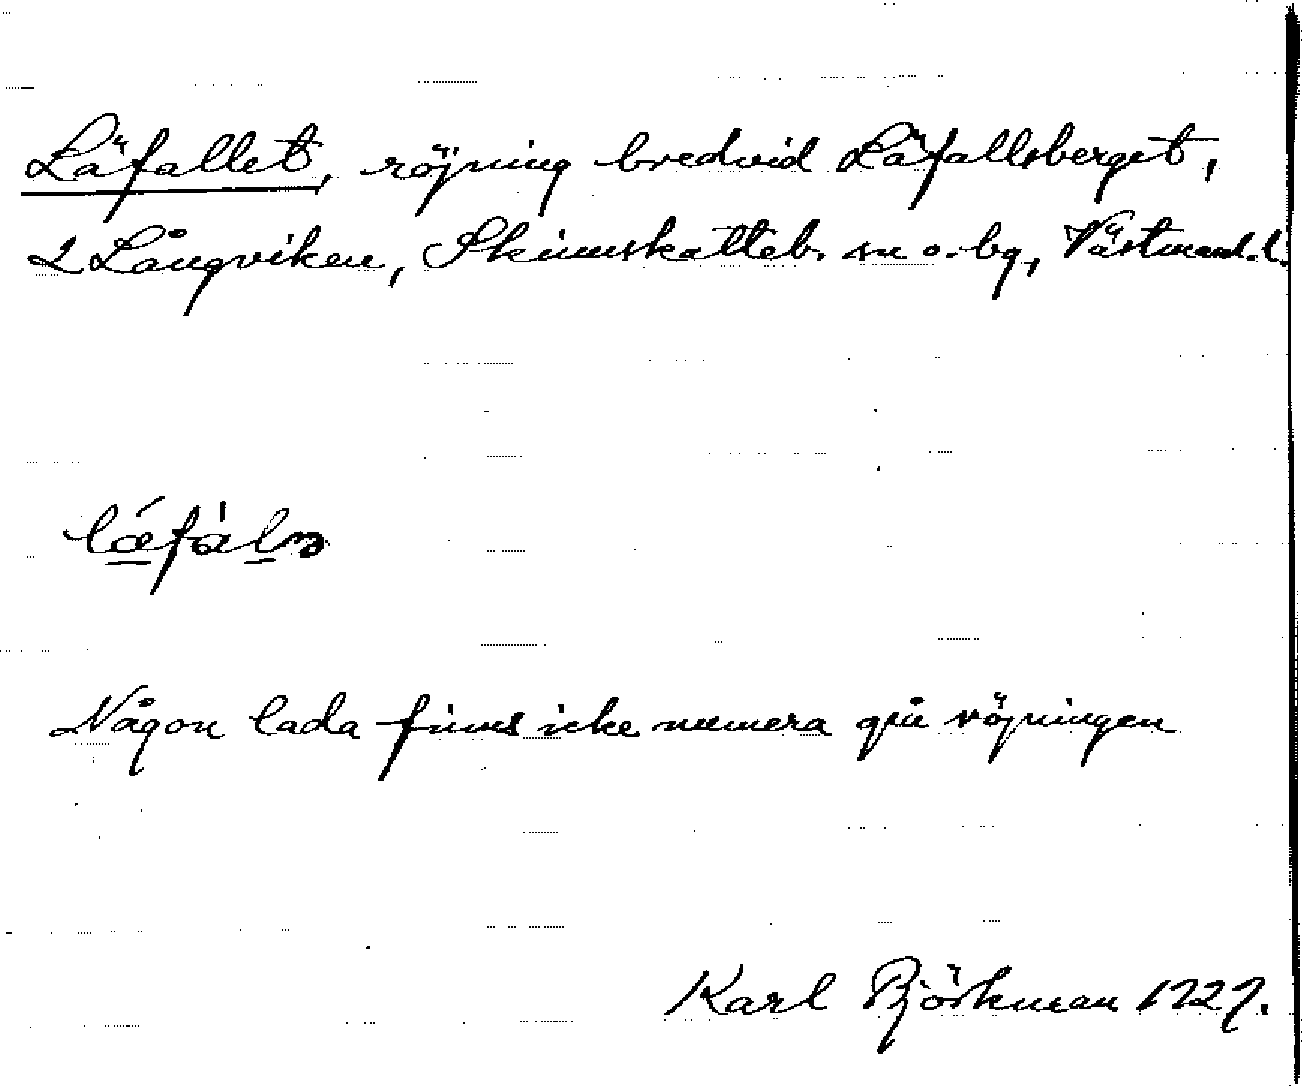 Läfallet, röjning bredvid Läfallsberget,
2 Långviken, Skinnskatteb. sn o. bg, Västmanl. l.
Någon lada finns icke numera på röjningen
Karl Björkman 1927.